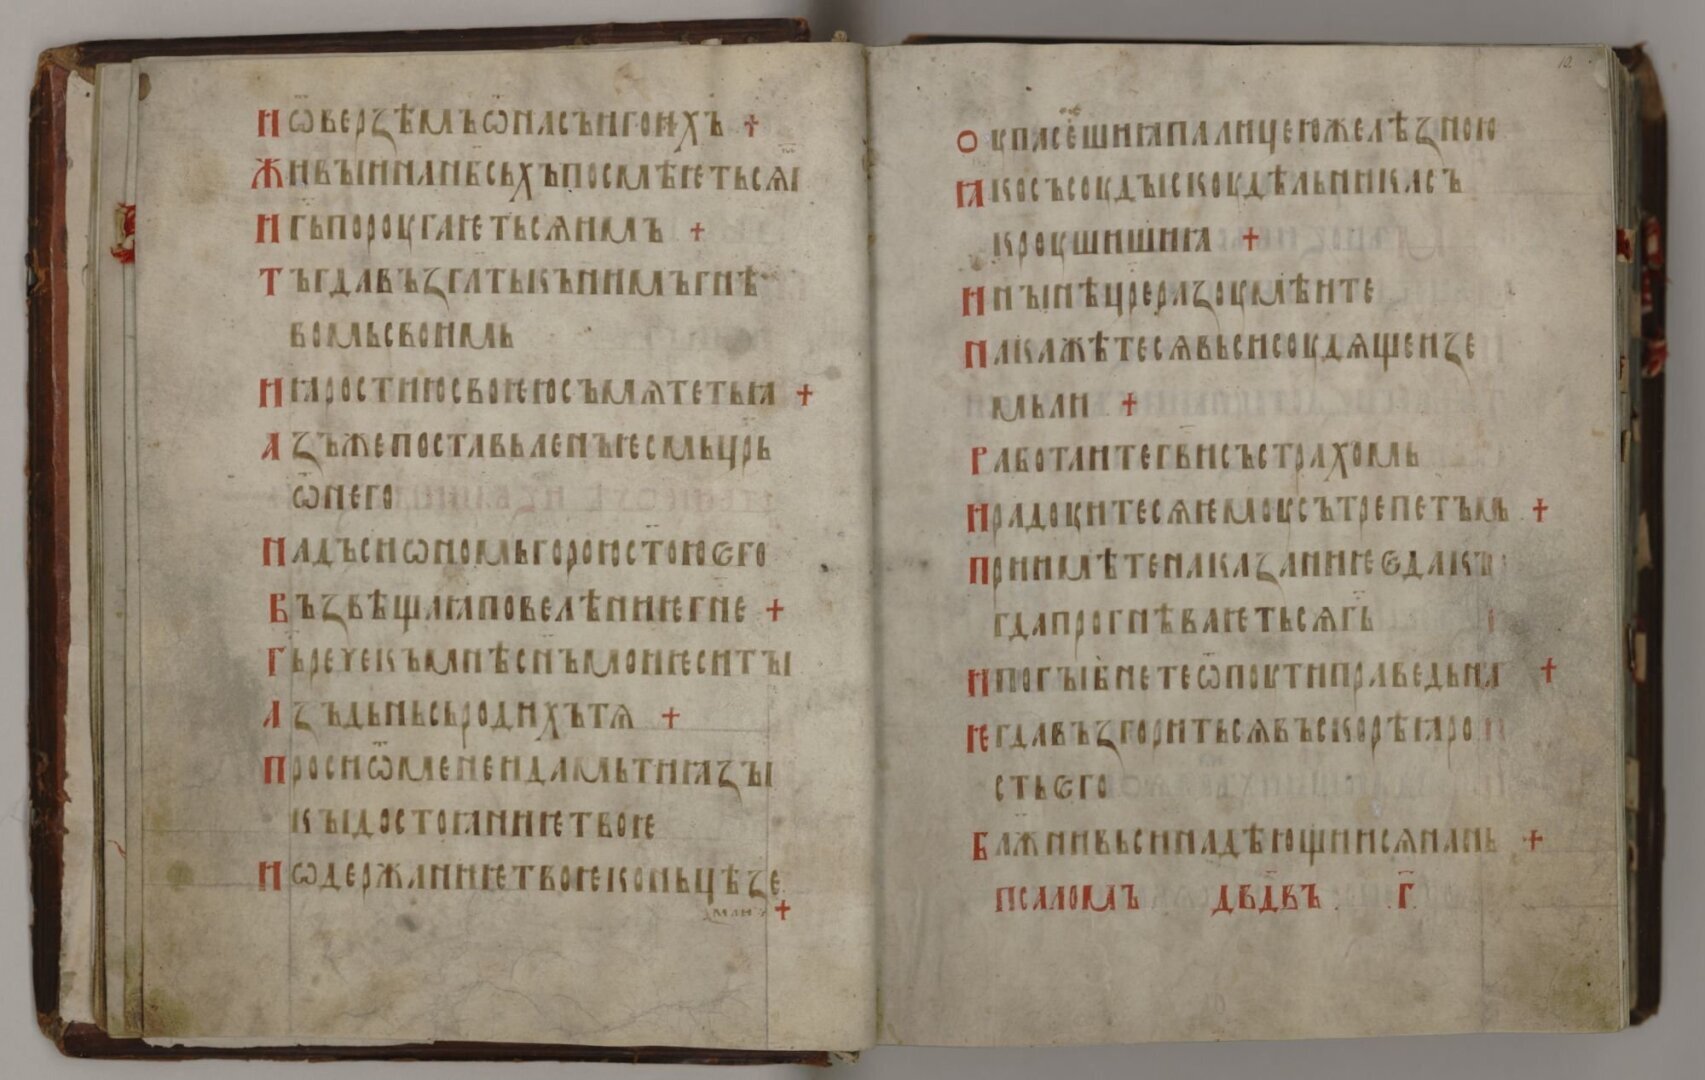 И ѿверземъ ѿ насъ иго ихъ +
Живыи на нб҃сьхъ посмѣѥтьсѧ і
И г҃ь пороугаѥтьсѧ имъ +
Тъгда възг҃лть къ нимъ гнѣ
вомь своимь
И ꙗростию своѥю съмѧтеть ꙗ +
Азъ же поставьленъ ѥсмь цр҃ь
ѿ него
Надъ сиѡномь горою ст҃ою ѥго
Възвѣщаꙗ повелѣниѥ г҃не +
Г҃ь рече къ мнѣ сн҃ъ мои ѥси ты
Азъ дьньсь родихъ тѧ +
Проси ѿ мене и дамь ти ꙗзы
кы достоꙗниѥ твоѥ
И ѡдержаниѥ твоѥ коньцѣ зе
мли +
Оупасеши ꙗ палицею желѣзною
Ꙗко съсоуды скоудѣльника съ
кроушиши ꙗ +
И нынѣ цр҃е разоумѣите
Накажѣтесѧ вьси соудѧщеи зе
мьли +
Работаите г҃ви съ страхомь
И радоуитесѧ ѥмоу съ трепетъмь +
Приимѣте наказаниѥ єда къ
гда прогнѣваѥтьсѧ г҃ь
И погыбнете ѿ поути праведьна +
Ѥгда възгоритьсѧ въскорѣ ꙗро
сть єго
Бл҃жни вьси надѣющиисѧ на нь +
Псаломъ дв҃двъ г҃